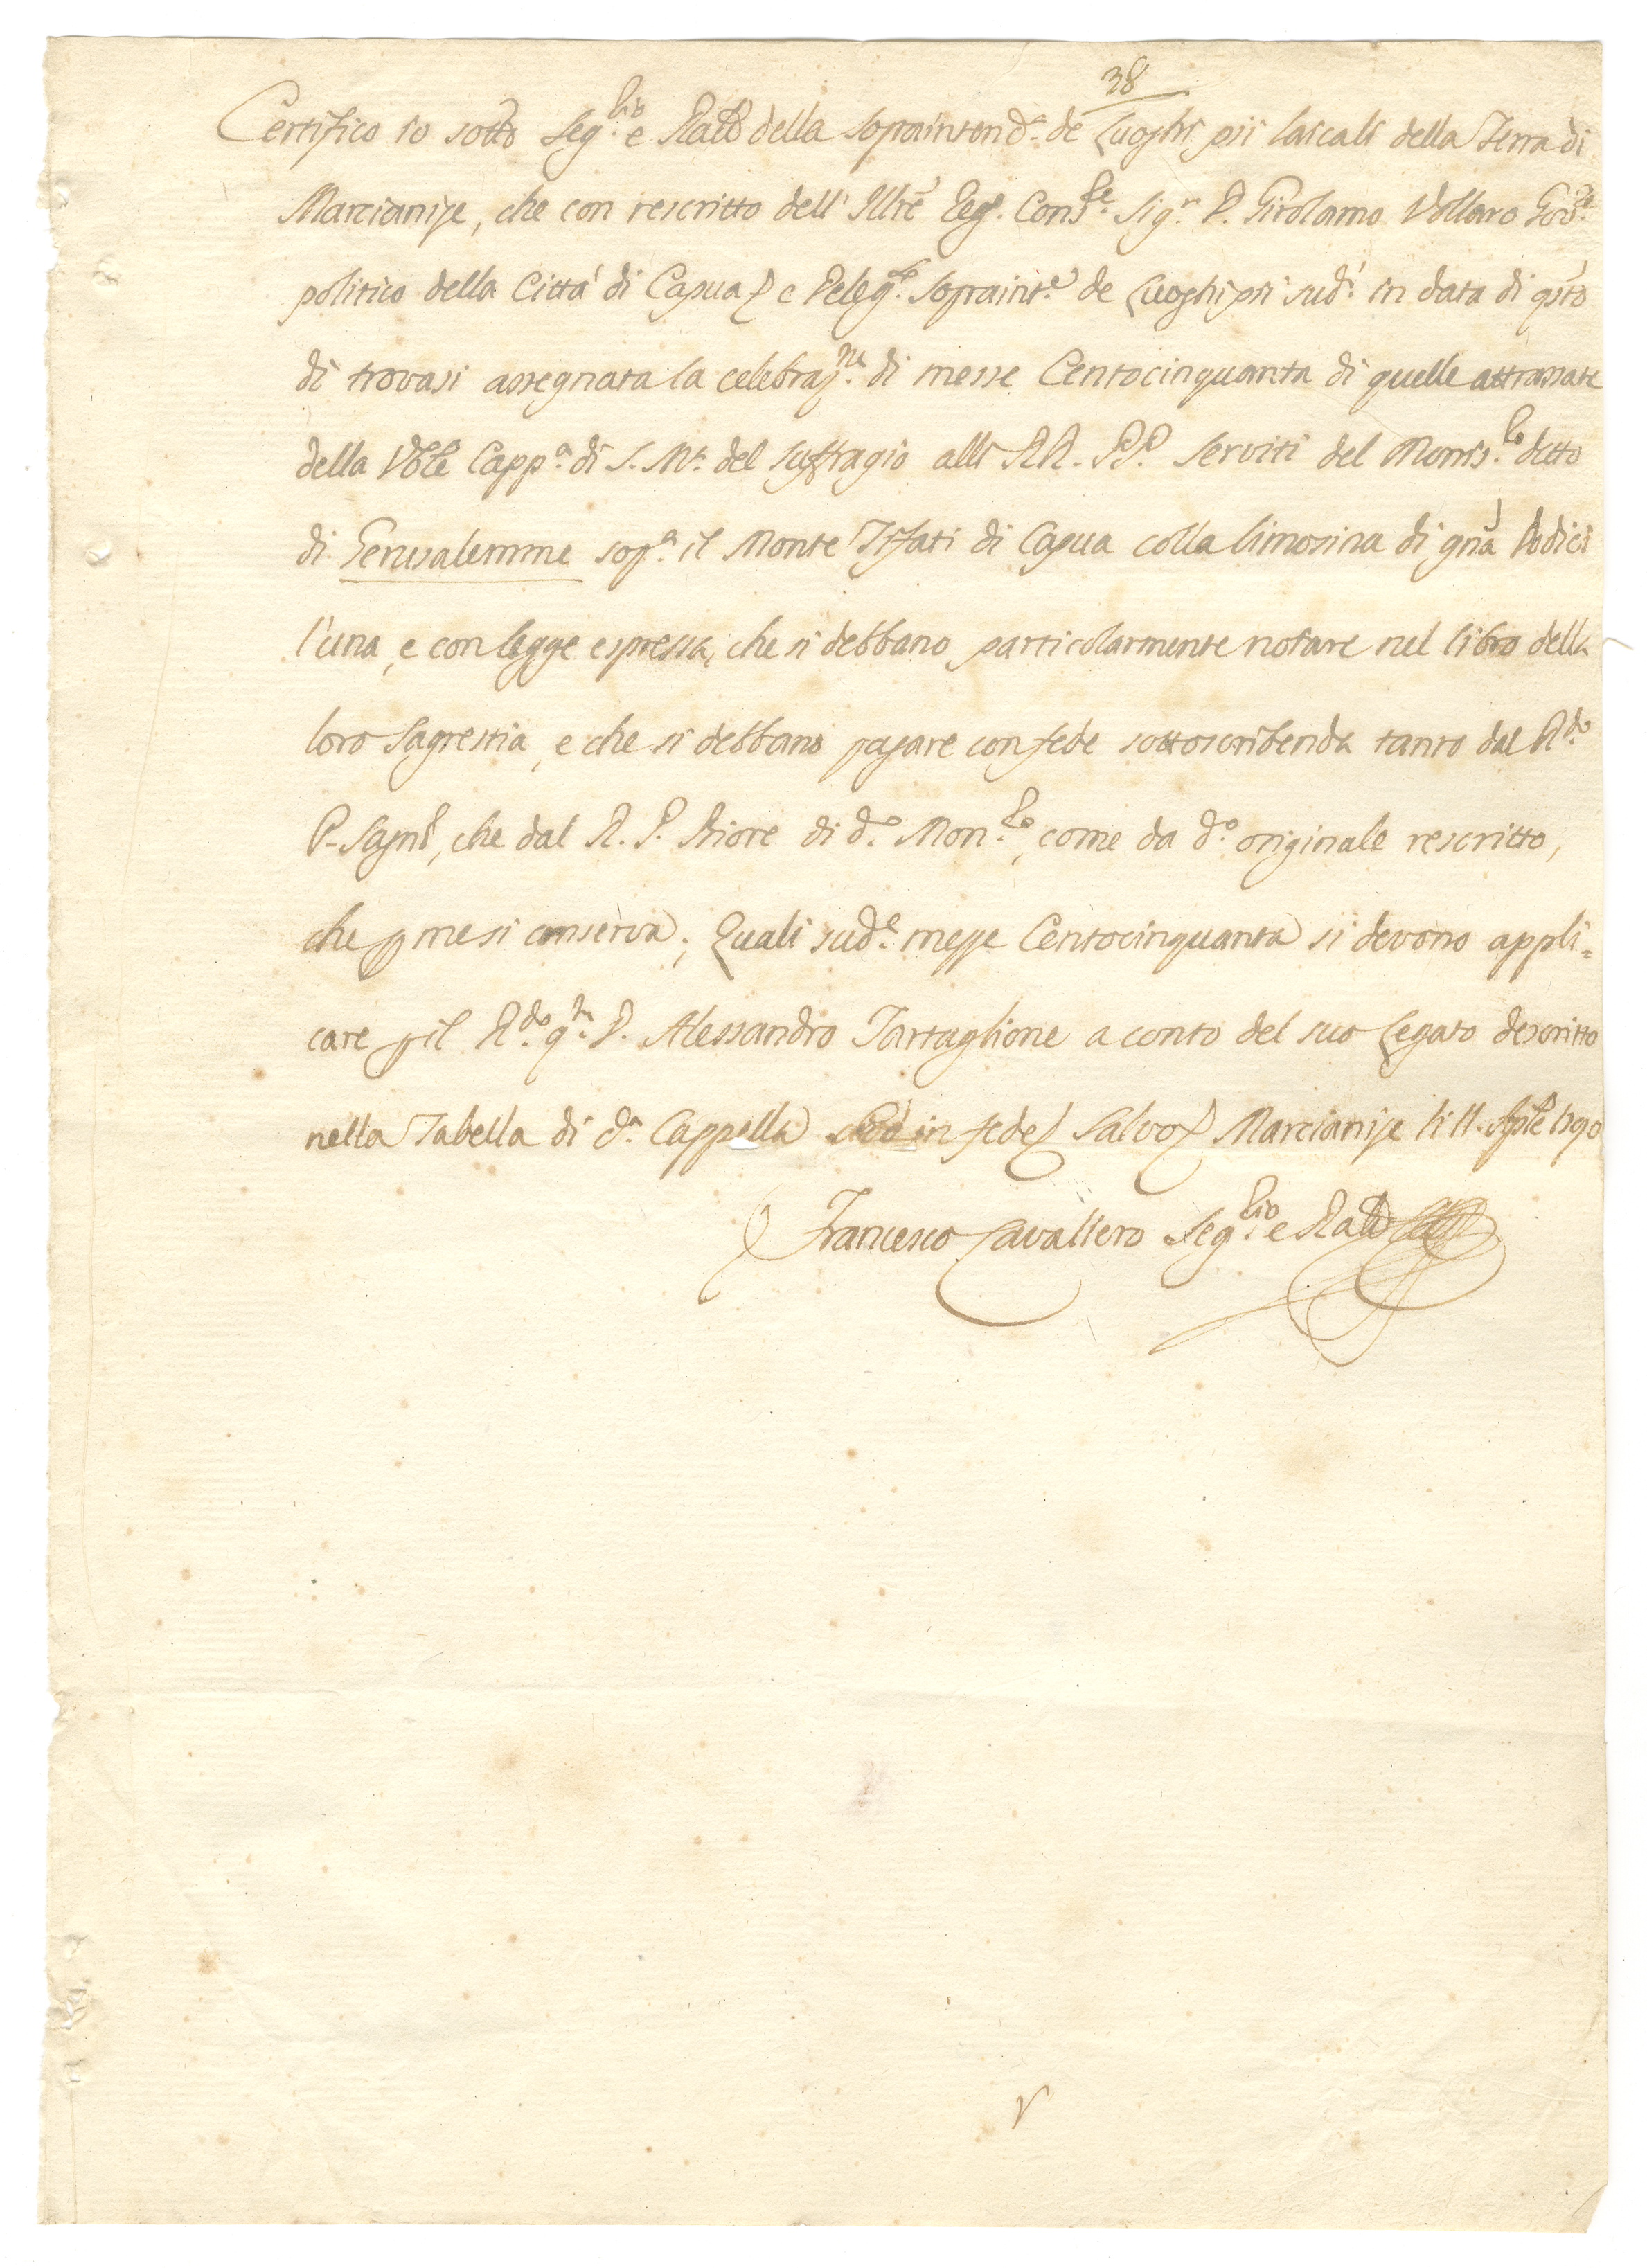 38
Certifico io sotto Seg.rio e Raale della Sopraintend.a de Luoghi pii laicali della Terra di
Marcianise, che con rescritto dell' Illre Reg. Cons.re Sig.r D. Girolamo Vollaro Gov.re
politico della Città di Capua e Deleg.to Sopraint.e de Luoghi pii sud.i in data di qsto
dì trovasi assegnata la celebraz.ne di messe Centocinquanta di quelle attrassate
della Vble Capp.a di S. M.a del suffragio alli RR. PP. Serviti del Monis.ro detto
di Gerusalemme sop.a il Monte Tifati di Capua colla limosina di gna Dodici
l'una, e con legge espressa, che si debbano particolarmente notare nel libro della
loro Sagrestia, e che si debbano pagare con fede sottoscribenda tanto dal R.do
P. Sagno, che dal R. P. Priore di d.o Mon.ro, come da d.o originale rescritto,
che p me si conserva; Quali sud.e messe Centocinquanta si devono appli=
care p il R.do q.m D. Alessandro Tartaglione a conto del suo Legato descritto
nella Tabella di d.a Cappella in fede Salvo Marcianise li 11. 1790
Francesco Cavallero Seg.rio e Raale